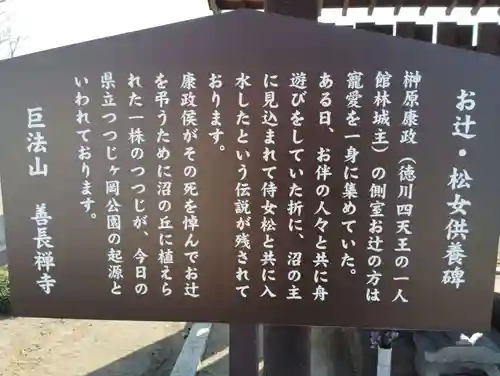 お辻・松女供養碑
榊原康政（徳川四天王の一人
館林城主）の側室お辻の方は
寵愛を一身に集めていた。
ある日、お伴の人々と共に舟
遊びをしていた折に、沼の主
に見込まれて侍女松と共に入
水したという伝説が残されて
おります。
康政侯がその死を悼んでお辻
を弔うために沼の丘に植えら
れた一株のつつじが、今日の
県立つつじヶ岡公園の起源と
いわれております。
巨法山　善長禅寺